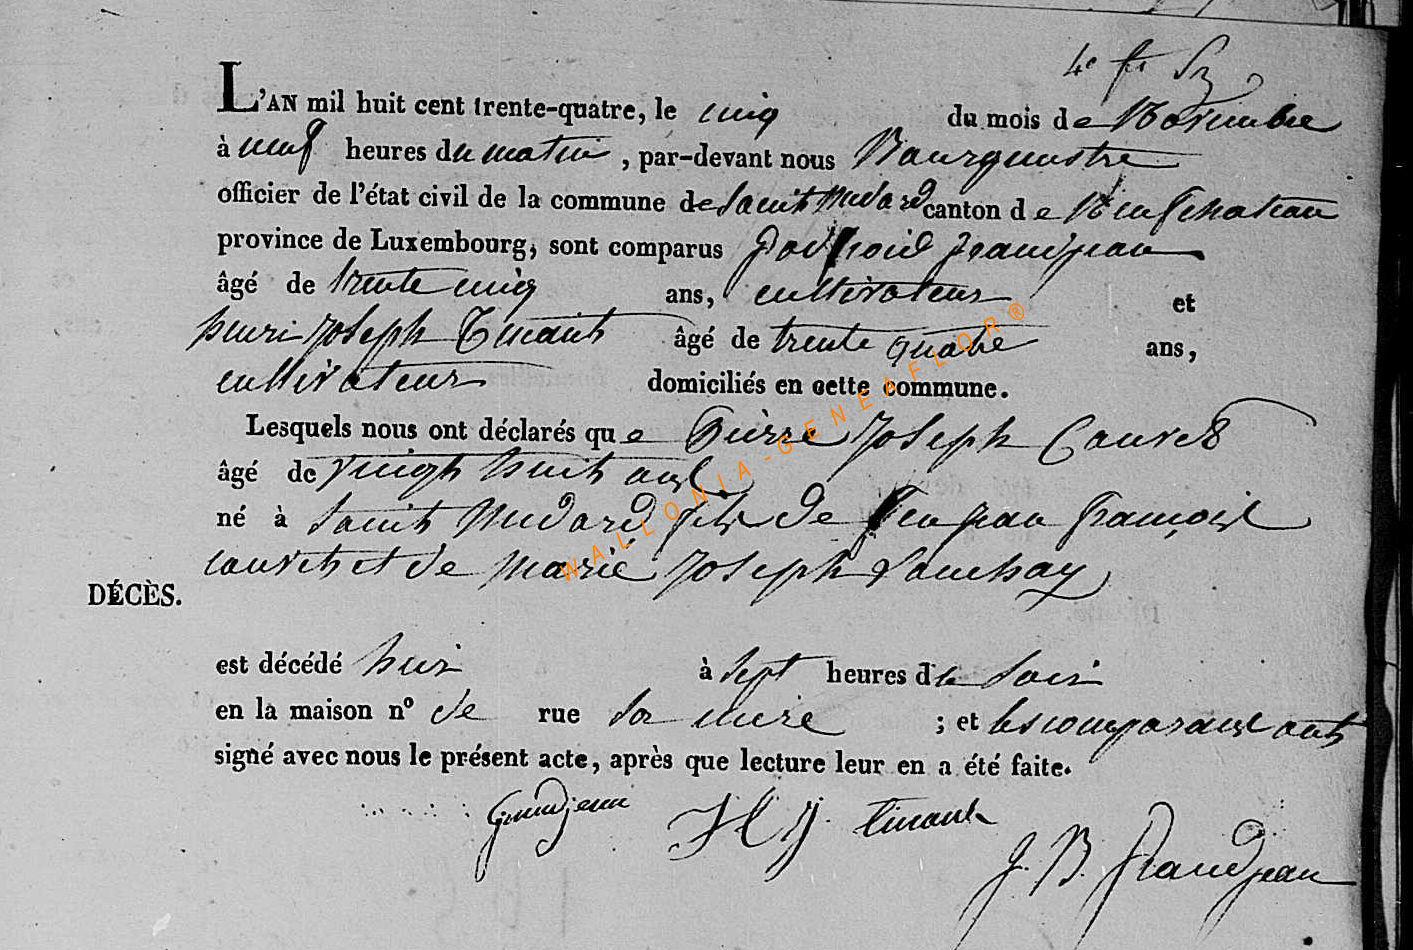 L'AN mil huit cent trente-quatre, le cinq du mois de Novembre
à neuf heures du matin, par-devant nous Bourgmestre
officier de l'état civil de la commune de Saint Médard canton de Neufchateau
province de Luxembourg, sont comparus grandjean
âgé de trente cinq ans, cultivateur et
henri Joseph Tinant âgé de trente quatre ans,
cultivateur domiciliés en cette commune.
Lesquels nous ont déclarés que Pierre Joseph Couvet
âgé de vingt huit ans
né à Saint Médard fils de feu jean françois
couvet et de Marie Joseph
DÉCÈS.
est décédé hier à sept heures du soir
en la maison n° de rue sa mère ; et les comparans ont
signé avec nous le présent acte, après que lecture leur en a été faite.
Grandjean H J. tinant
J. B. Grandjean
WALLONIA-GENEAFLOR®